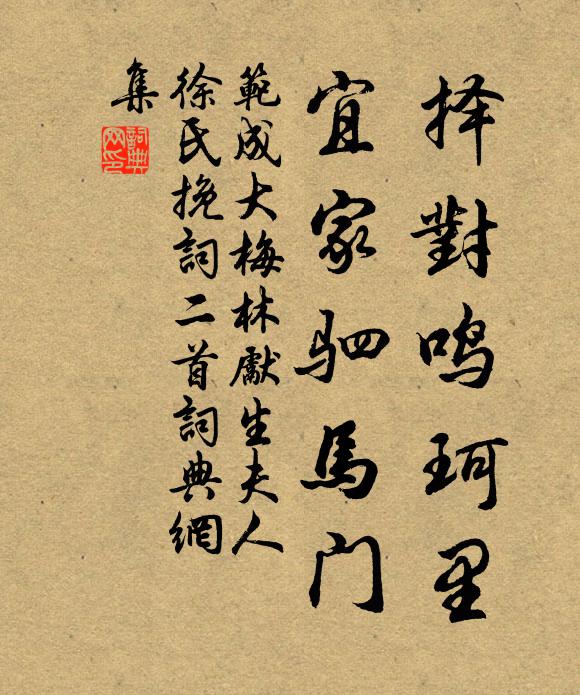 择對鸣珂里
宜家驷馬门
範成大梅林獻生夫人
徐氏挽詞二首詞典網
集
詞典网印